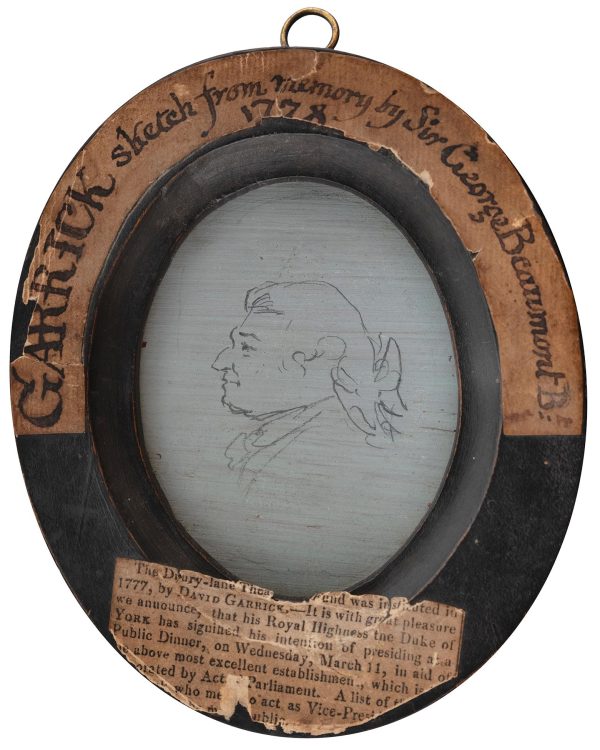 GARRICK sketch from memory by Sir George Beaumont Bt
1778
The Drury-lane Thea end was instituted in
1777, by DAVID GARRICK.—It is with great pleasure
we announce, that his Royal Highness the Duke of
YORK has signified his intention of presiding at a
Public Dinner, on Wednesday, March 11, in aid of
above most excellent establishment, which is
by Act Parliament. A list of
who me to act as Vice-Presi